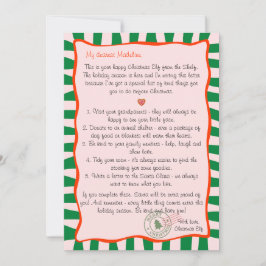 My dearest Madeline,
This is your happy Christmas Elf from the Shelf.
The holiday season is here and I'm writing this letter
because I've got a special list of kind things for you
to do before Christmas.
1. Visit your grandparents - they will always be
happy to see your little face.
2. Donate to an animal shelter - even a package of
dog food or blankets will warm their hearts.
3. Be kind to your family members - help, laugh and
show love.
4. Tidy your room - it's always easier to find the
stocking for some goodies.
5. Write a letter to the Santa Claus - we always
want to know what you like.
If you complete these, Santa will be very proud of
you. And remember - every little thing counts
this holiday season. Be kind and love you!
With love,
Christmas Elf